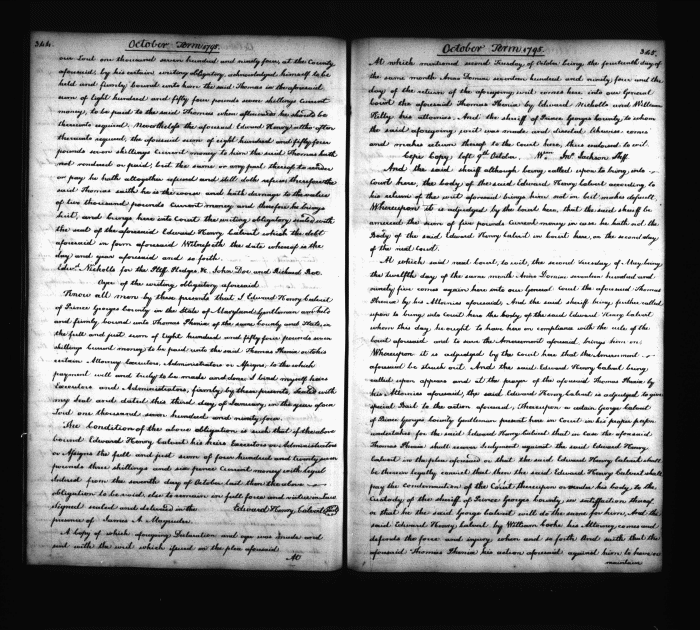 344. October Term 1795.
our Lord one thousand seven hundred and ninety four, at the County
aforesaid, by his certain writing obligatory, acknowledged himself to be
held and firmly bound unto him the said Thomas in the aforesaid
sum of eight hundred and fifty four pounds seven shillings current
money, to be paid to the said Thomas when afterwards he should be
thereunto required. Nevertheless the aforesaid Edward Henry altho often
thereunto required, the aforesaid sum of eight hundred and fifty four
pounds seven shillings current money to him the said Thomas hath
not rendered or paid, but the same or any part thereof to render
or pay he hath altogether refused and still doth refuse therefore the
said Thomas saith he is the worse and hath damage to the value
of two thousand pounds current money and therefore he brings
suit, and brings here into Court the writing obligatory sealed with
the seal of the aforesaid Edward Henry Calvert which the debt
aforesaid in form aforesaid Witnesseth the date whereof is the
day and year aforesaid and so forth
Edwd. Nicholls for the Plff. Pledges &c John Doe and Richard Roe
Copy of the writing obligatory aforesaid
Know all men by these presents that I Edward Henry Calvert
of Prince Georges County in the State of Maryland Gentleman am held
and firmly bound unto Thomas of the same County and State, in
the full and just sum of Eight hundred and fifty four pounds seven
shillings Current money; to be paid unto the said Thomas or his
certain Attorney Executors, Administrators or Assigns, to the which
payment well and truly to be made and done I bind myself heirs
Executors and Administrators, firmly by these presents, Sealed with
my seal and dated this third day of January in the year of our
Lord one thousand seven hundred and ninety four
The Condition of the above obligation is such that if the above
bound Edward Henry Calvert his heirs Executors or Administrators
or Assigns the full and just sum of four hundred and twenty seven
pounds three shillings and six pence Current money with legal
Interest from the seventh day of October last then the above
obligation to be void else to remain in full force and virtue in law
Signed sealed and delivered in the Edward Henry Calvert
presence of James A. Magruder
A Copy of which aforegoing Declaration and was made and
sent with the writ which issued in the plea aforesaid
At
October Term 1795. 345.
At which mentioned second Tuesday of October being the fourteenth day of
the same month Anno Domini seventeen hundred and ninety four and the
day of the return of the aforegoing writ comes here into our General
Court the aforesaid Thomas by Edward Nicholls and William
Kilty, his attornies. And the sheriff of Prince Georges County, to whom
the said aforegoing writ was made and directed likewise comes
and makes return thereof to the Court here, thus endorsed to wit.
Cepi Copy left 9th October. Wm. Jackson Shff.
And the said sheriff although being called upon to bring into
Court here, the body of the said Edward Henry Calvert according to
his return of the writ aforesaid brings him not in but makes default.
Whereupon it is adjudged by the Court here, that the said sheriff be
amerced the sum of five pounds current money, in case he hath not the
Body of the said Edward Henry Calvert in Court here, on the second day
of the next Court.
At which said next Court, to wit, the second Tuesday of May being
the twelfth day of the same month Anno Domini seventeen hundred and
ninety five comes again here into our General Court the aforesaid Thomas
by his Attornies aforesaid, And the said sheriff being further called
upon to bring into Court here the body of the said Edward Henry Calvert
whom this day he ought to have here in compliance with the rule of the
Court aforesaid and to save the Amercement aforesaid, brings him in.
Whereupon it is adjudged by the Court here that the Amercement
aforesaid be struck out. And the said Edward Henry Calvert being
called upon appears and at the prayer of the aforesaid Thomas by
his Attornies aforesaid, the said Edward Henry Calvert is adjudged to give
special Bail to the action aforesaid, Thereupon a certain George Calvert
of Prince Georges County Gentleman present here in Court in his proper person
undertakes for the said Edward Henry Calvert that in case the aforesaid
Thomas shall recover Judgment against the said Edward Henry
Calvert in the plea aforesaid or that he the said Edward Henry Calvert shall
be thereon legally convict that then the said Edward Henry Calvert shall
pay the Condemnation of the Court thereupon or render his body, to the
Custody of the sheriff of Prince Georges County, in satisfaction thereof
or that he the said George Calvert will do the same for him. And the
said Edward Henry Calvert by William Cooke his Attorney, comes and
defends the force and injury, when and so forth And saith that the
aforesaid Thomas his action aforesaid against him to have or
maintain